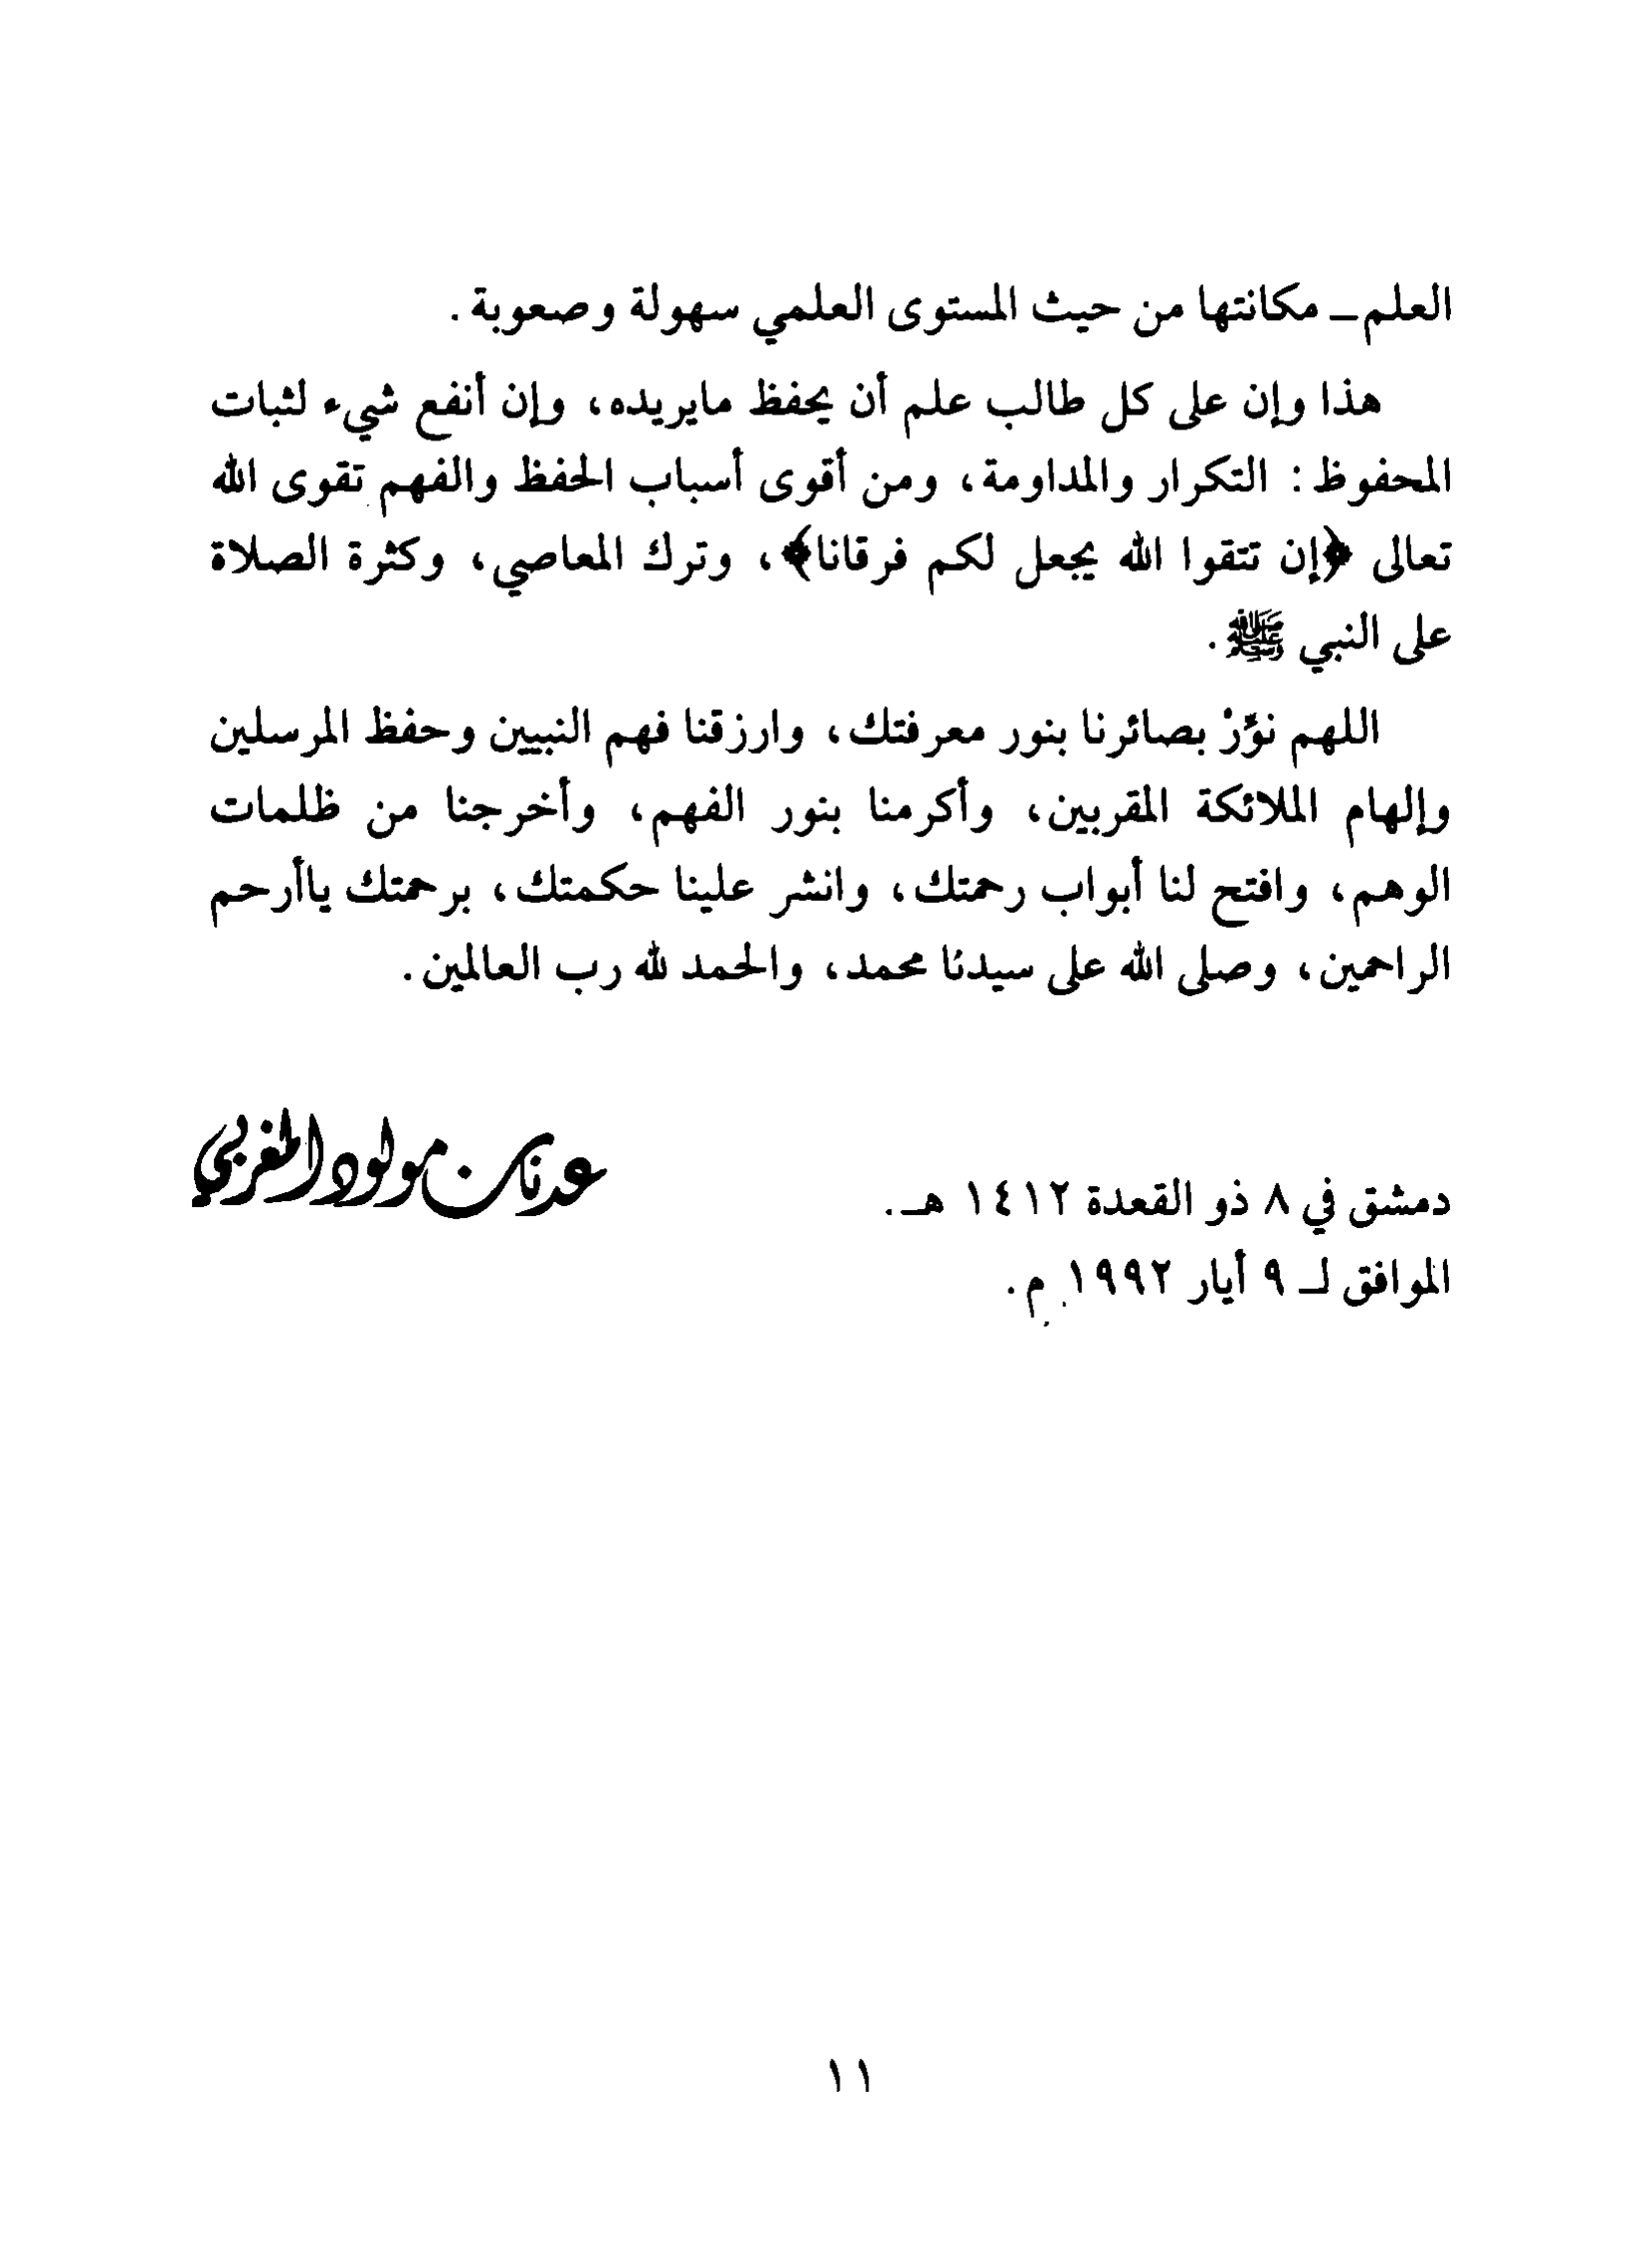 العلم ــ مكانتها من حيث المستوى العلمي سهولة وصعوبة.
هذا وإن على كل طالب علم أن يحفظ مايريده، وإن أنفع شيء لثبات
المحفوظ: التكرار والمداومة، ومن أقوى أسباب الحفظ والفهم تقوى الله
تعالى ﴿إن تتقوا الله يجعل لكم فرقانا﴾، وترك المعاصي، وكثرة الصلاة
على النبي ﷺ.
اللهم نوِّرْ بصائرنا بنور معرفتك، وارزقنا فهم النبيين وحفظ المرسلين
وإلهام الملائكة المقربين، وأكرمنا بنور الفهم، وأخرجنا من ظلمات
الوهم، وافتح لنا أبواب رحمتك، وانشر علينا حكمتك، برحمتك ياأرحم
الراحمين، وصلى الله على سيدنا محمد، والحمد لله رب العالمين.
عدنان مولود المغربي
دمشق في ٨ ذو القعدة ١٤١٢ هـ.
الموافق لـ ٩ أيار ١٩٩٢ م.
١١